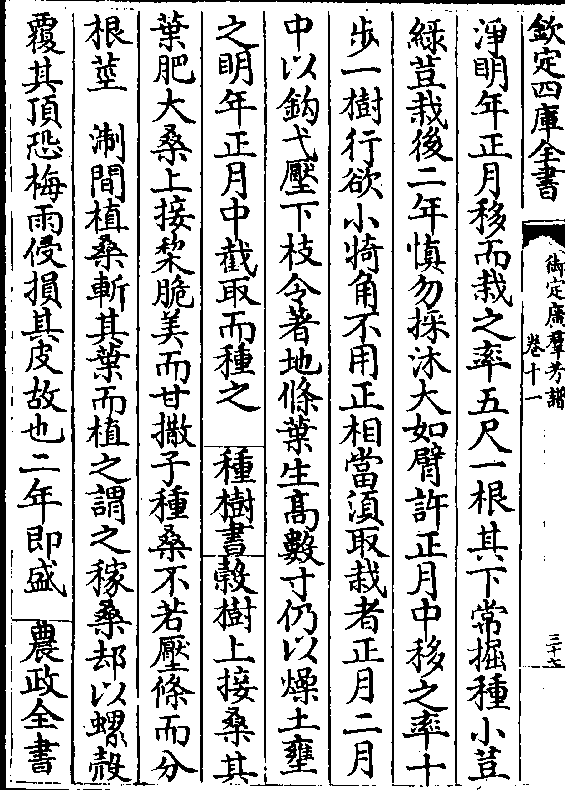 欽定四庫全書
御定廣羣芳譜
卷十一
三十六
淨眀年正月移而栽之率五尺一根其下常掘種小荳
綠荳栽後二年慎勿採沐大如臂許正月中移之率十
歩一樹行欲小犄角不用正相當須取栽者正月二月
中以鈎弋壓下枝令著地條葉生髙數寸仍以燥土壅
之眀年正月中截取而種之　種樹書榖樹上接桑其
葉肥大桑上接棃脆美而甘撒子種桑不若壓條而分
根莖　淛間植桑斬其葉而植之謂之稼桑却以螺殻
覆其頂恐梅雨侵損其皮故也二年即盛　農政全書